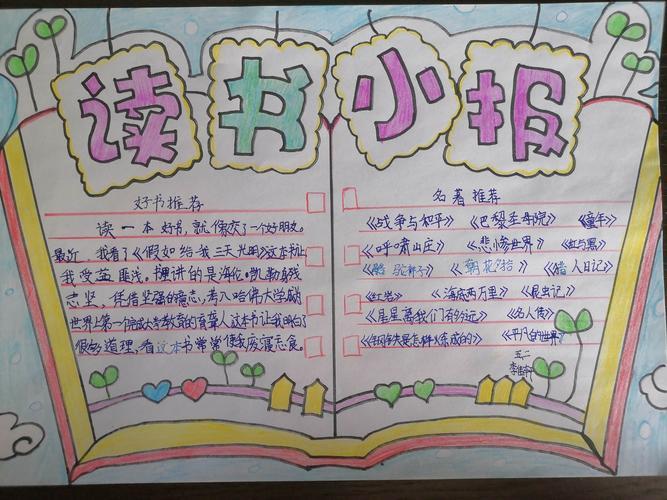 读书小报
好书推荐
读一本好书，就像交了一个好朋友。
最近，我看了《假如给我三天光明》这本书让
我受益匪浅。书里讲的是海伦·凯勒身残
志坚，凭借坚强的意志，考入哈佛大学成
世界上第一个完成大学教育的盲聋人这本书让我明白了
很多道理，看这本书常常使我废寝忘食。
名著推荐
《战争与和平》《巴黎圣母院》《童年》
《呼啸山庄》《悲惨世界》《红与黑》
《骆驼祥子》《朝花夕拾》《猎人日记》
《红岩》《海底两万里》《昆虫记》
《星星离我们有多远》《名人传》
《钢铁是怎样炼成的》《平凡的世界》
五二
李佳